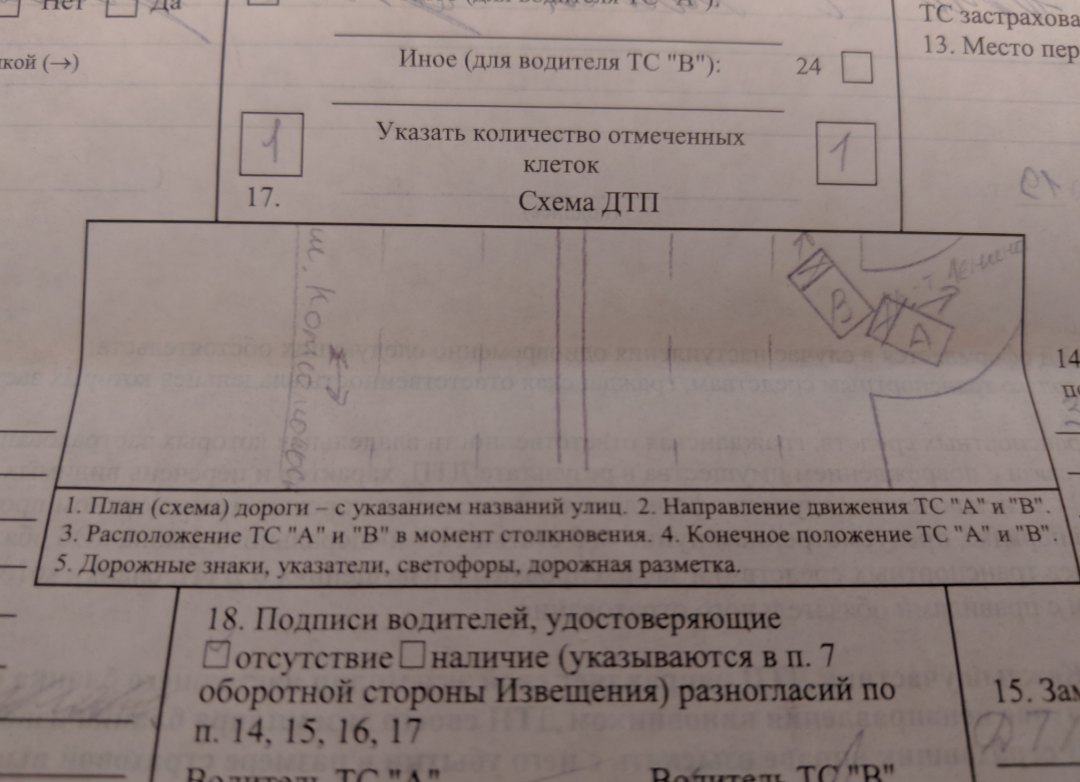 Нет Да
ТС застрахова
13. Место пер
кой (→)
Иное (для водителя ТС "В"): 24
1 Указать количество отмеченных 1
клеток
17. Схема ДТП
ш.
Ленина
В
А
14
1. План (схема) дороги – с указанием названий улиц. 2. Направление движения ТС "А" и "В".
3. Расположение ТС "А" и "В" в момент столкновения. 4. Конечное положение ТС "А" и "В".
5. Дорожные знаки, указатели, светофоры, дорожная разметка.
18. Подписи водителей, удостоверяющие
отсутствие наличие (указываются в п. 7
оборотной стороны Извещения) разногласий по
п. 14, 15, 16, 17
15. Зам
Водитель ТС "А" Водитель ТС "В"